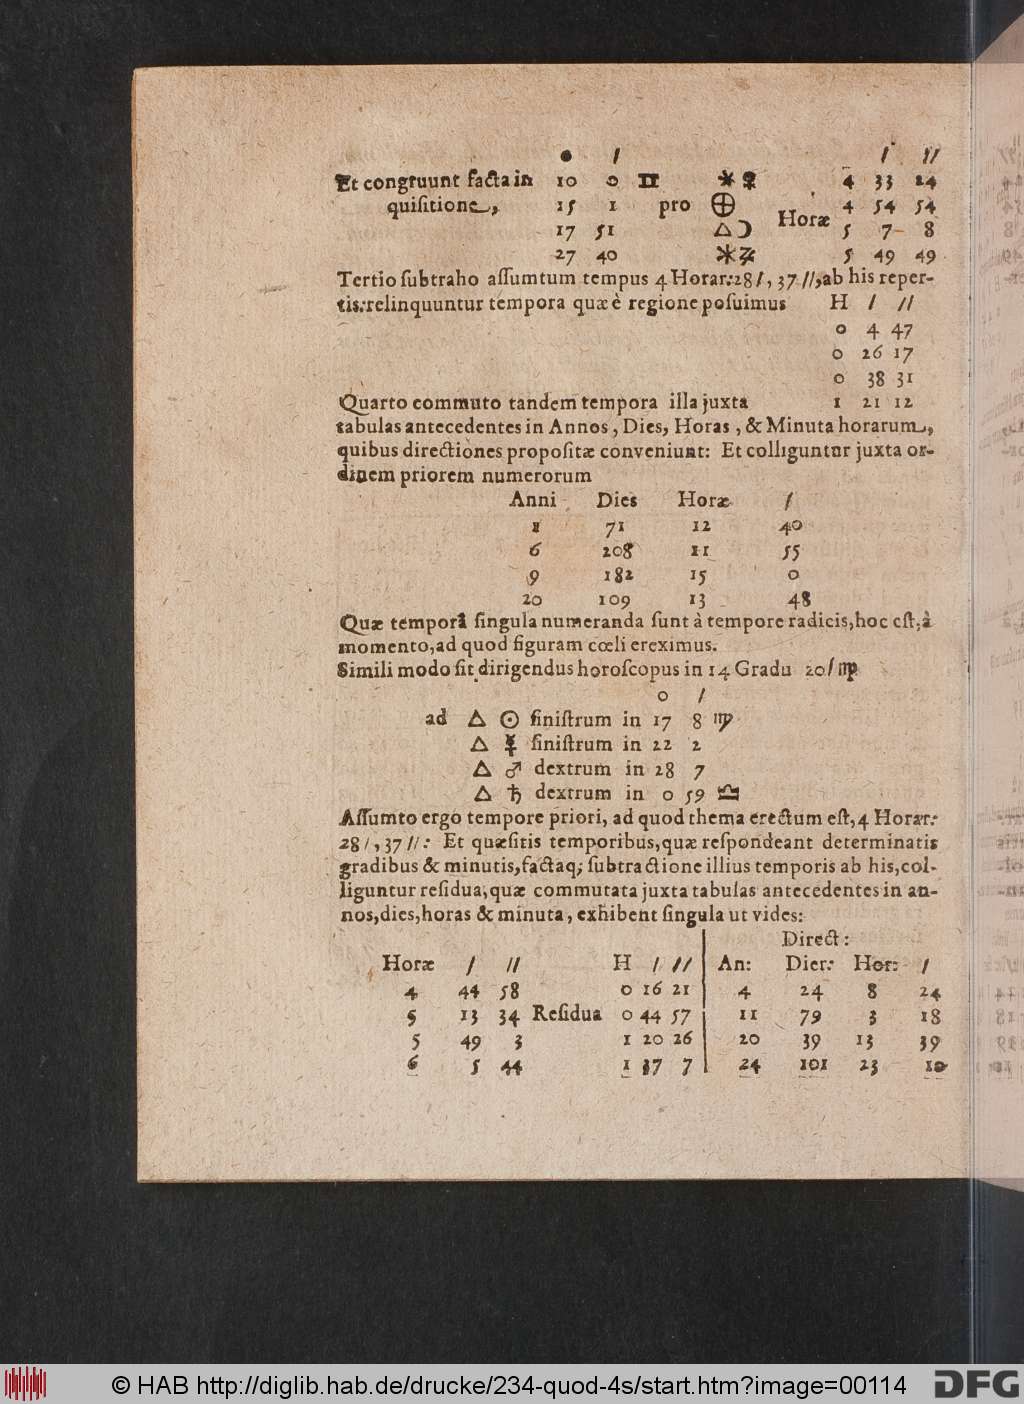 ° / / //
Et congruunt facta in 10 0 ♊ ⚹ ♀ 4 33 24
quisitione, 15 1 pro ⊕ Horæ 4 54 54
17 51 △ ☽ 5 7 8
27 40 ⚹ ♃ 5 49 49
Tertio subtraho assumtum tempus 4 Horar: 28/, 37//, ab his reper-
tis: relinquuntur tempora quæ è regione posuimus H / //
0 4 47
0 26 17
0 38 31
Quarto commuto tandem tempora illa juxta 1 21 12
tabulas antecedentes in Annos, Dies, Horas, & Minuta horarum,
quibus directiones propositæ conveniunt: Et colliguntur juxta or-
dinem priorem numerorum
Anni Dies Horæ /
1 71 12 40
6 208 11 55
9 182 15 0
20 109 13 48
Quæ tempora singula numeranda sunt à tempore radicis, hoc est, à
momento, ad quod figuram cœli ereximus.
Simili modo sit dirigendus horoscopus in 14 Gradu 20/ ♍
° /
ad △ ☉ sinistrum in 17 8 ♍
△ ☿ sinistrum in 22 2
△ ♂ dextrum in 28 7
△ ♄ dextrum in 0 59 ♎
Assumto ergo tempore priori, ad quod thema erectum est, 4 Horar:
28/, 37//: Et quæsitis temporibus, quæ respondeant determinatis
gradibus & minutis, factaq; subtractione illius temporis ab his, col-
liguntur residua, quæ commutata juxta tabulas antecedentes in an-
nos, dies, horas & minuta, exhibent singula ut vides:
Direct:
Horæ / // H / // An: Dier: Hor: /
4 44 58 0 16 21 4 24 8 24
5 13 34 Residua 0 44 57 11 79 3 18
5 49 3 1 20 26 20 39 13 39
6 5 44 1 37 7 24 101 23 10
© HAB http://diglib.hab.de/drucke/234-quod-4s/start.htm?image=00114 DFG